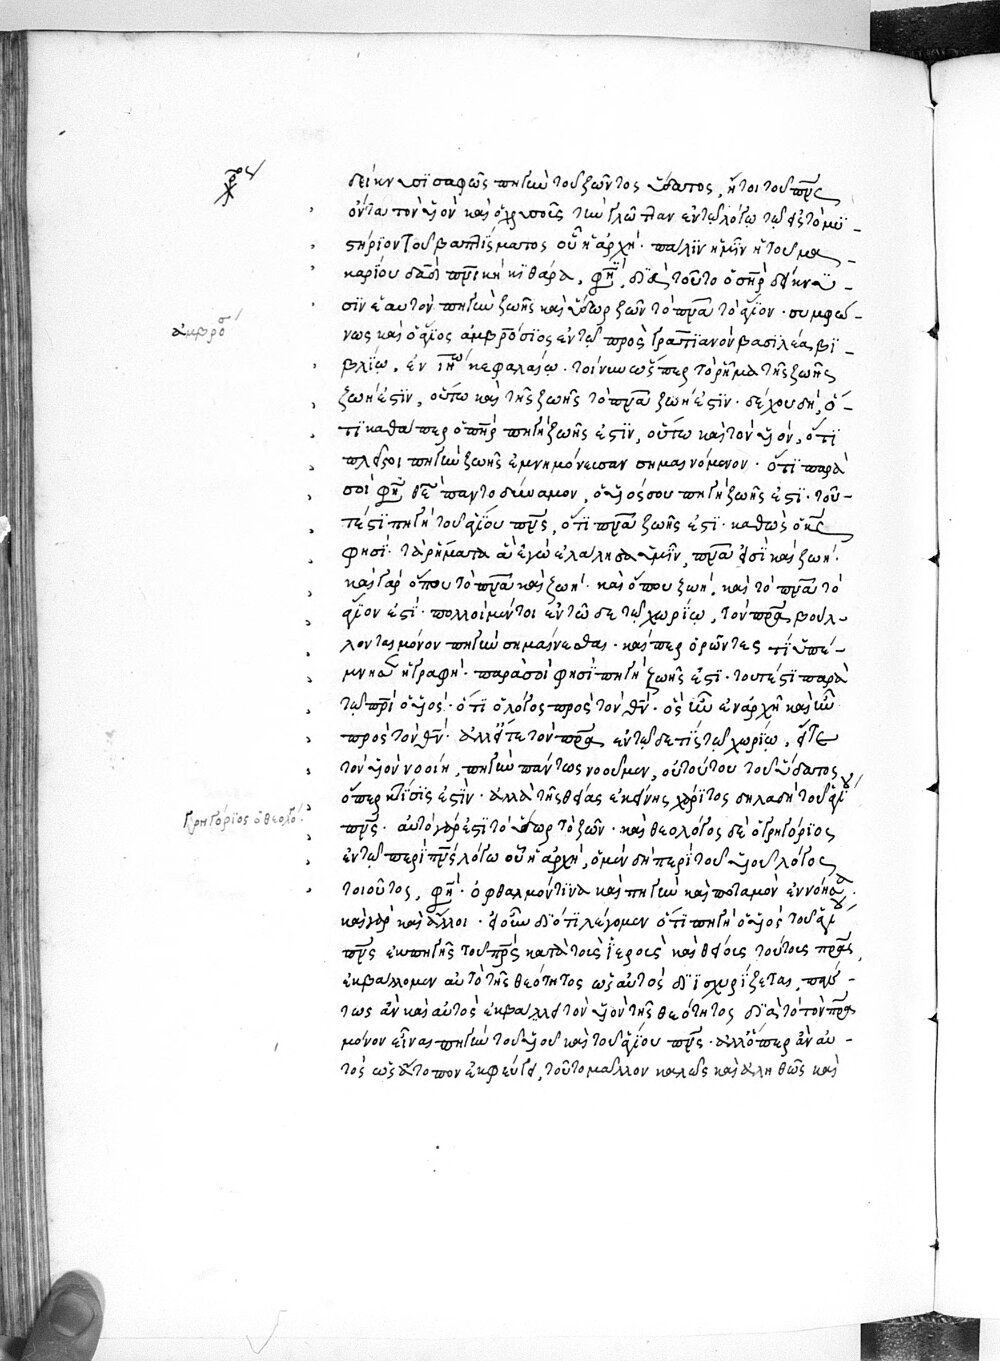 δείκνυσι σαφῶς πηγὴν τοῦ ζῶντος ὕδατος, ἤτοι τοῦ πνς
ὄντα τὸν υἱὸν καὶ τὴν ἐν τῷ λόγῳ τῷ
στήριον τοῦ βαπτίσματος οὗ ἡ ἀρχή· πάλιν ἡμῖν ἡ τοῦ μα-
καρίου δαδ πνικὴ κιθάρα, φη, διὰ τοῦτο ὁ πηρ δείκνυ-
σιν ἑαυτὸν πηγὴν ζωῆς καὶ ὕδωρ ζῶν τὸ πνα τὸ ἅγιον· συμφώ-
ἀμβρο
νως καὶ ὁ ἅγιος ἀμβρόσιος ἐν τῷ πρὸς Γρατιανὸν βασιλέα βι-
βλίῳ, ἐν ιη κεφαλαίῳ· τοίνυν ὥσπερ τὸ ῥῆμα τῆς ζωῆς
ζωή ἐστιν, οὕτω καὶ τῆς ζωῆς τὸ πνα ζωή ἐστιν· δέχου δὴ, ὅ-
τι καθάπερ ὁ πηρ πηγὴ ζωῆς ἐστιν, οὕτω καὶ τὸν υἱὸν, ὅτι
πλεῖστοι πηγὴν ζωῆς ἐμνημόνευσαν σημαινόμενον· ὅτι παρὰ
σοὶ φη, θεὲ παντοδύναμον, ὁ υἱός σου πηγὴ ζωῆς ἐστι· του-
τέστι πηγὴ τοῦ ἁγίου πνς, ὅτι πνα ζωῆς ἐστι· καθὼς ὁ κς
φησι· τὰ ῥήματα ἃ ἐγὼ ἐλάλησα ὑμῖν, πνα εἰσὶ καὶ ζωή·
καὶ γὰρ ὅπου τὸ πνα καὶ ζωή· καὶ ὅπου ζωή, καὶ τὸ πνα τὸ
ἅγιον ἐστί· πολλοὶ μέντοι ἐν τῷδε τῷ χωρίῳ, τὸν πρα βούλ-
λονται μόνον πηγὴν σημαίνεσθαι· καίπερ ὁρῶντες τί ὑπέ-
μνησεν ἡ γραφή· παρὰ σοί φησι πηγὴ ζωῆς ἐστι· τουτέστι παρὰ
τῷ πρὶ ὁ υἱός· ὅτι ὁ λόγος πρὸς τὸν θν· ὃς ἦν ἐν ἀρχῇ καὶ ἦν
πρὸς τὸν θν· ἀλλ' εἴτε τὸν πρα ἐν τῷδέ τις τῷ χωρίῳ, εἴτε
τὸν υἱὸν νοοίη, πηγὴν πάντως νοοῦμεν, οὐ τούτου τοῦ ὕδατος
ὅπερ κτίσις ἐστιν· ἀλλὰ τῆς θείας ἐκείνης χάριτος δηλαδὴ τοῦ ἁγίου
Γρηγόριος ὁ θεολό
πνς· αὐτὸ γάρ ἐστι τὸ ὕδωρ τὸ ζῶν· καὶ θεολόγος δὲ ὁ Γρηγόριος
ἐν τῷ περὶ πνς λόγῳ οὗ ἡ ἀρχή, ὁ μὲν δὴ περὶ τοῦ υἱοῦ λόγος
τοιοῦτος, φη· ὀφθαλμόν τινα καὶ πηγὴν καὶ ποταμὸν ἐννόησα
καὶ γὰρ καὶ ἄλλοι· εἰ οὖν διότι λέγομεν ὅτι πηγὴ ὁ υἱός τοῦ ἁγίου
πνς ἐκ πηγῆς τοῦ πρς κατὰ τοὺς ἱεροὺς καὶ θείους τούτους πρας,
ἐκβάλλομεν αὐτὸ τῆς θεότητος ὡς αὐτὸς διισχυρίζεται, πάν-
τως ἂν καὶ αὐτὸς ἐκβάλλει τὸν υἱὸν τῆς θεότητος διὰ τὸ τὸν πρα
μόνον εἶναι πηγὴν τοῦ υἱοῦ καὶ τοῦ ἁγίου πνς· ἀλλ' ὅπερ ἂν αὐ-
τὸς ὡς ἄτοπον ἐκφεύγει, τοῦτο μᾶλλον καλῶς καὶ ἀληθῶς καὶ